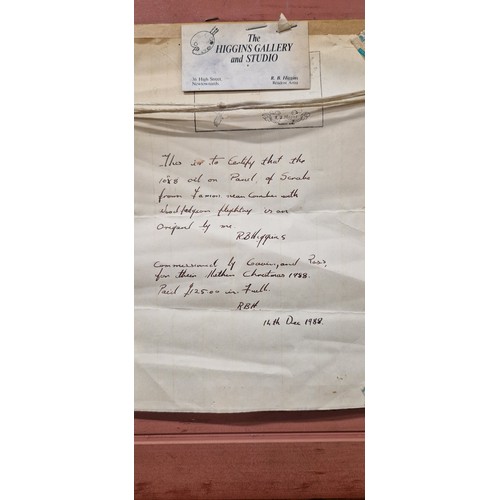 The
HIGGINS GALLERY
and STUDIO
36 High Street,
R. B. Higgins
This is to Certify that the
10x8 oil on Panel, of
from near with
flighting is an
original by me
RBHiggins
Commissioned by Gavin, and Ross,
for their Mother Christmas 1988.
Paid £125.00 in Full.
RBH
14th Dec 1988.